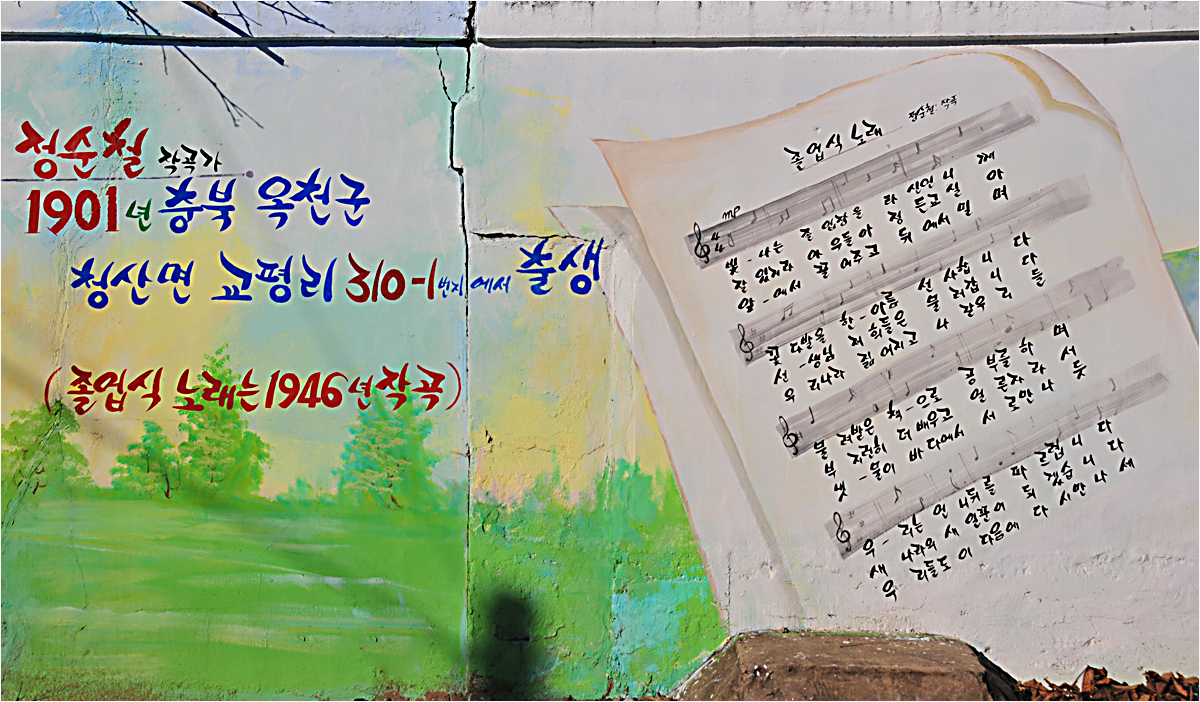 정순철 작곡가
1901년 충북 옥천군
청산면 교평리 310-1번지에서 출생
(졸업식 노래는 1946년작곡)
졸업식 노래 정순철: 작곡
mp
4
4
빛 - 나는 졸 업장을 타 신언 니 께
잘 있거라 아 우들아 정 든교실 아
앞 - 에서 끌 어주고 뒤 에서 밀 며
꽃 다발을 한 - 아름 선 사합 니 다
선 - 생님 저 희들은 물 러갑 니 다
우 리나라 짊 어지고 나 갈우 리 들
물 려받은 책 - 으로 공 부를 하 며
부 지런히 더 배우고 얼 른자 라 서
냇 - 물이 바 다에서 서 로만 나 듯
우 - 리는 언 니뒤를 따 르렵 니 다
새 나라의 새 일꾼이 되 겠습 니 다
우 리들도 이 다음에 다 시만 나 세